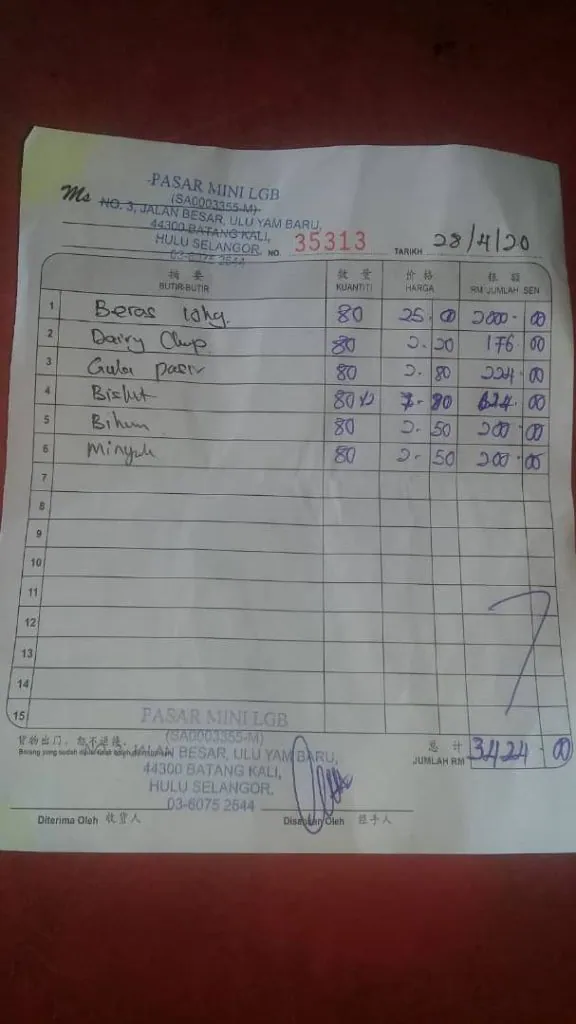 PASAR MINI LGB
Ms (SA0003355-M)
NO. 3, JALAN BESAR, ULU YAM BARU,
44300 BATANG KALI,
HULU SELANGOR.
03-6075 2644
NO. 35313 TARIKH 28/4/20
摘要 数量 价格 银额
BUTIR-BUTIR KUANTITI HARGA RM JUMLAH SEN
1 Beras 10kg. 80 25.00 2000.00
2 Dairy Chup 80 2.20 176 00
3 Gula pasir 80 2.80 224.00
4 Biskut 80 7.80 624.00
5 Bihun 80 2.50 200.00
6 Minyak 80 2.50 200.00
7
8
9
10
11
12
13
14
15
PASAR MINI LGB
(SA0003355-M)
货物出门，恕不退换。 JALAN BESAR, ULU YAM BARU,
44300 BATANG KALI,
HULU SELANGOR.
03-6075 2644
总计
JUMLAH RM 3424.00
Diterima Oleh 收货人 Disahkan Oleh 经手人